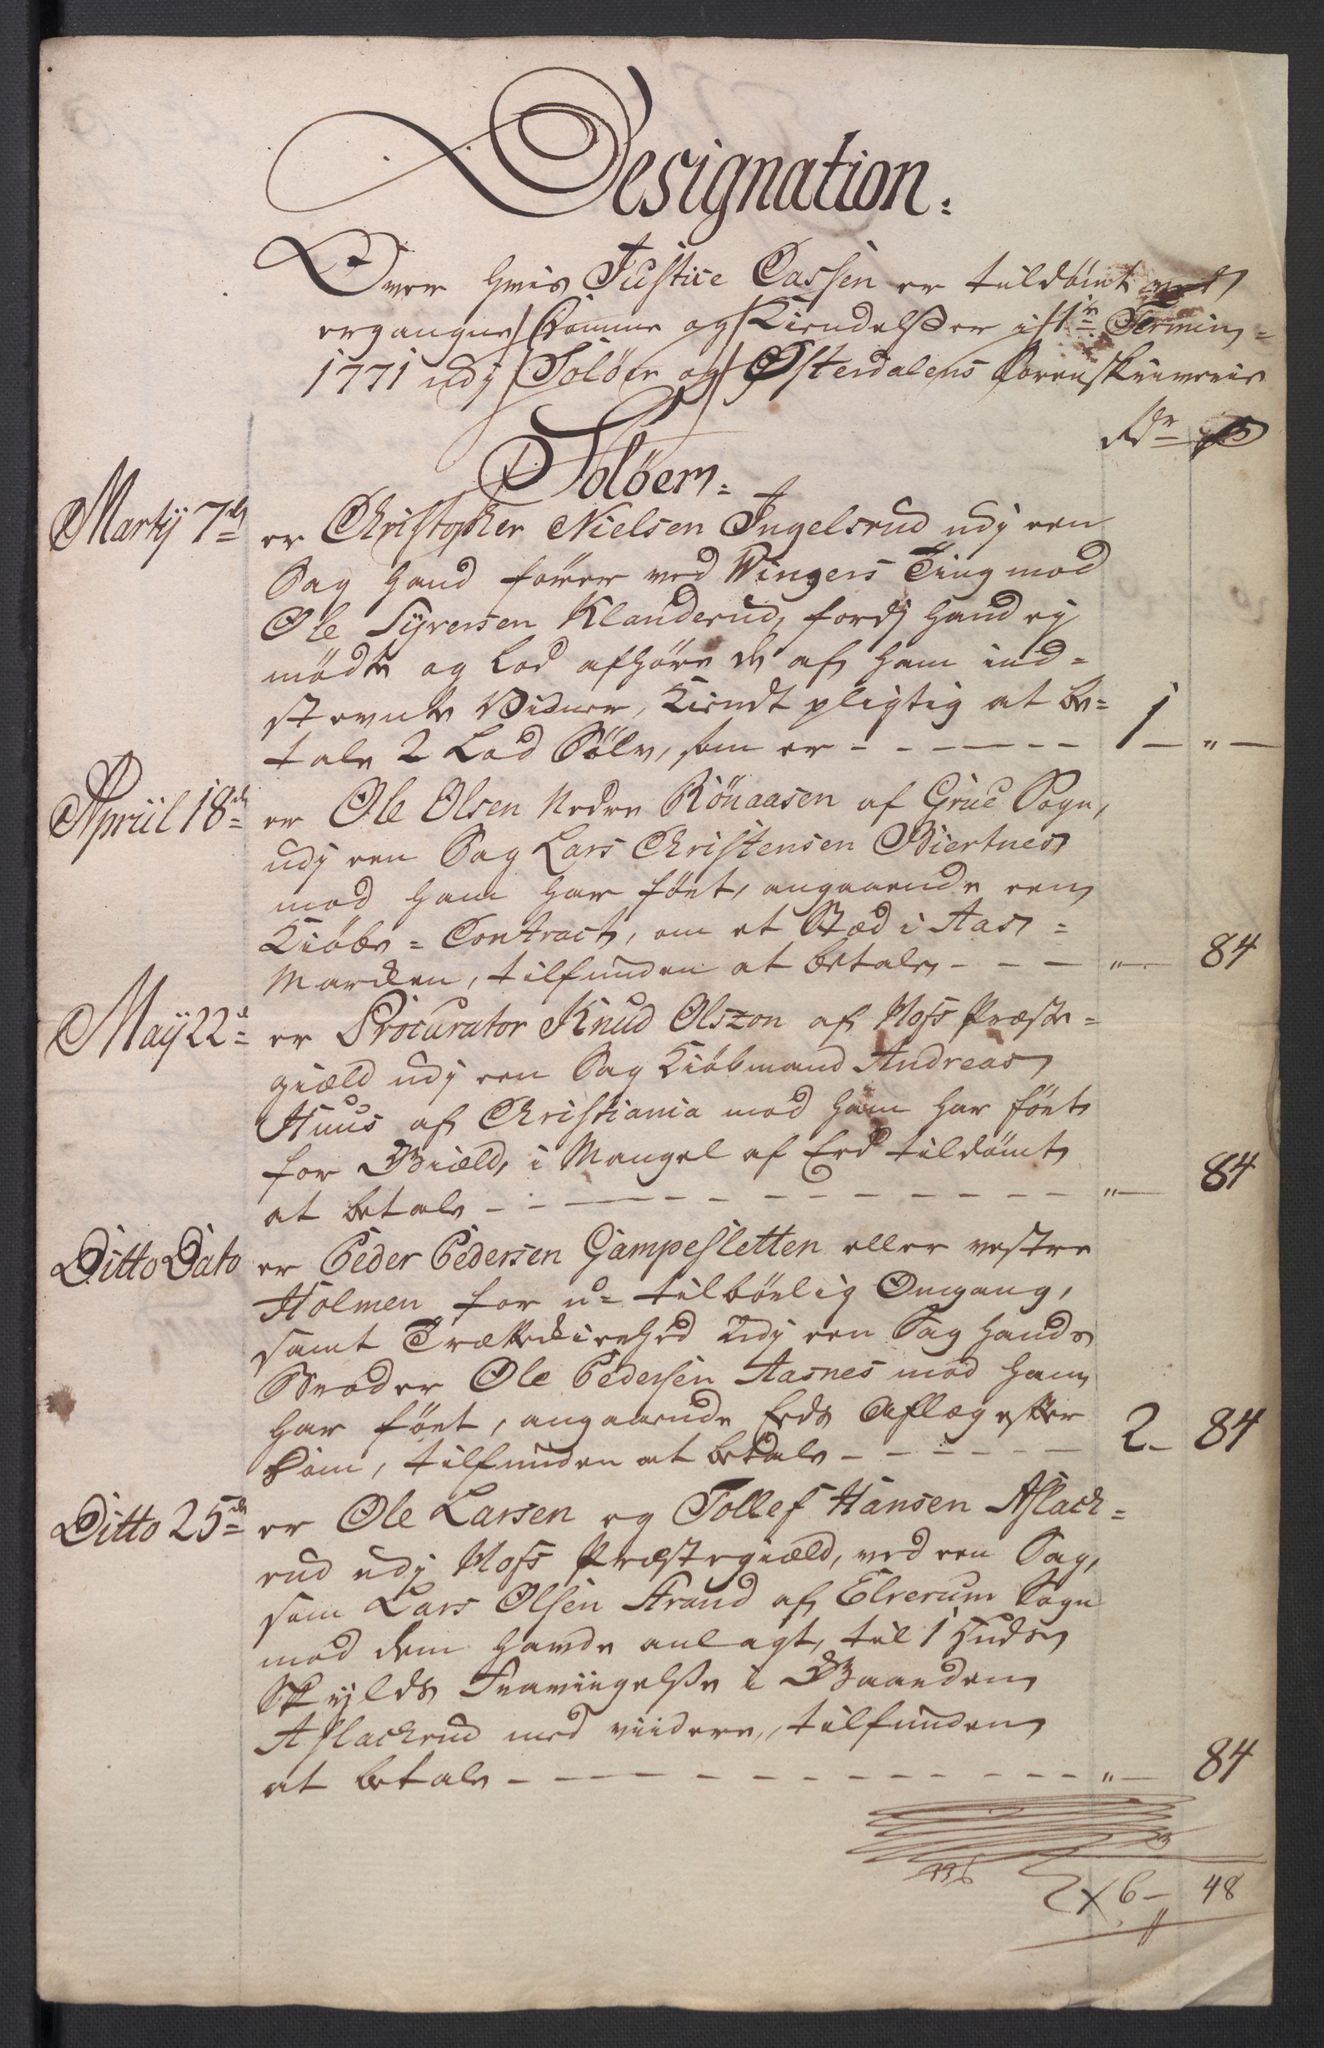 Designation.
Over hvis Justice Cassen er tildømt ved
ergangne Domme og Kiendelsser i 1te Termin
1771 udj Soløer og Østerdalens Sorenskriverie
Rdr ß
Soløer.
Martij 7de er Christopher Nielsen Ingelsrud udj een
Sag hand fører ved Wingers Ting mod
Ole Syversen Klanderud, fordj hand ey
mødte og lod afhøre de af ham ind-
stevnte Vidner, Kiendt pligtig at be-
tale 2 Lod Sølv, som er - - - - - - 1 - „ -
Apriil 18de er Ole Olsen Nedre Rönaasen af Grue Sogn,
udj een Sag Lars Christensen Biertnes
mod ham har fört, angaaende een
Kiöbe-Contract, om et Stæd i Aas-
Marcken, tilfunden at betale - - - „ - 84
May 22de er Procurator Knud Olszon af Hofs Præste-
giæld udj een Sag Kiöbmand Andreas
Huus af Christiania mod ham har fört
for Giæld, i Mangel af Eed tildømt
at betale - - - - - - - - - - „ - 84
Ditto Dato er Peder Pedersen Gampesletten eller vestre
Holmen for u-tilbörlig Omgang,
samt Trættekierhed udj een Sag hands
Broder Ole Pedersen Aasnes mod ham
har fört, angaaende Eeds Aflæg efter
Dom, tilfunden at betale - - - - - - 2 - 84
Ditto 25de er Ole Larsen og Tollef Hansen Aslack-
rud udj Hofs Præstegiæld, ved een Sag,
som Lars Olsen Strand af Elverum Sogn
mod dem havde anlagt, til 1 Huds
Skylds Fravigelse i Gaarden
Aslackrud med viidere, tilfunden
at betale - - - - - - - - - - „ - 84
6 - 48